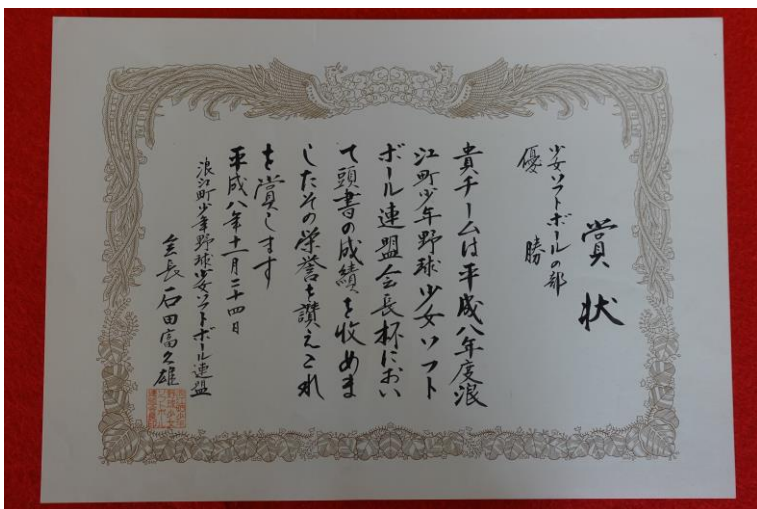 賞状
少女ソフトボールの部
優勝
貴チームは平成八年度浪
江町少年野球少女ソフト
ボール連盟会長杯におい
て頭書の成績を収めま
したその栄誉を讃えこれ
を賞します
平成八年十一月二十四日
浪江町少年野球少女ソフトボール連盟
会長 石田富久雄